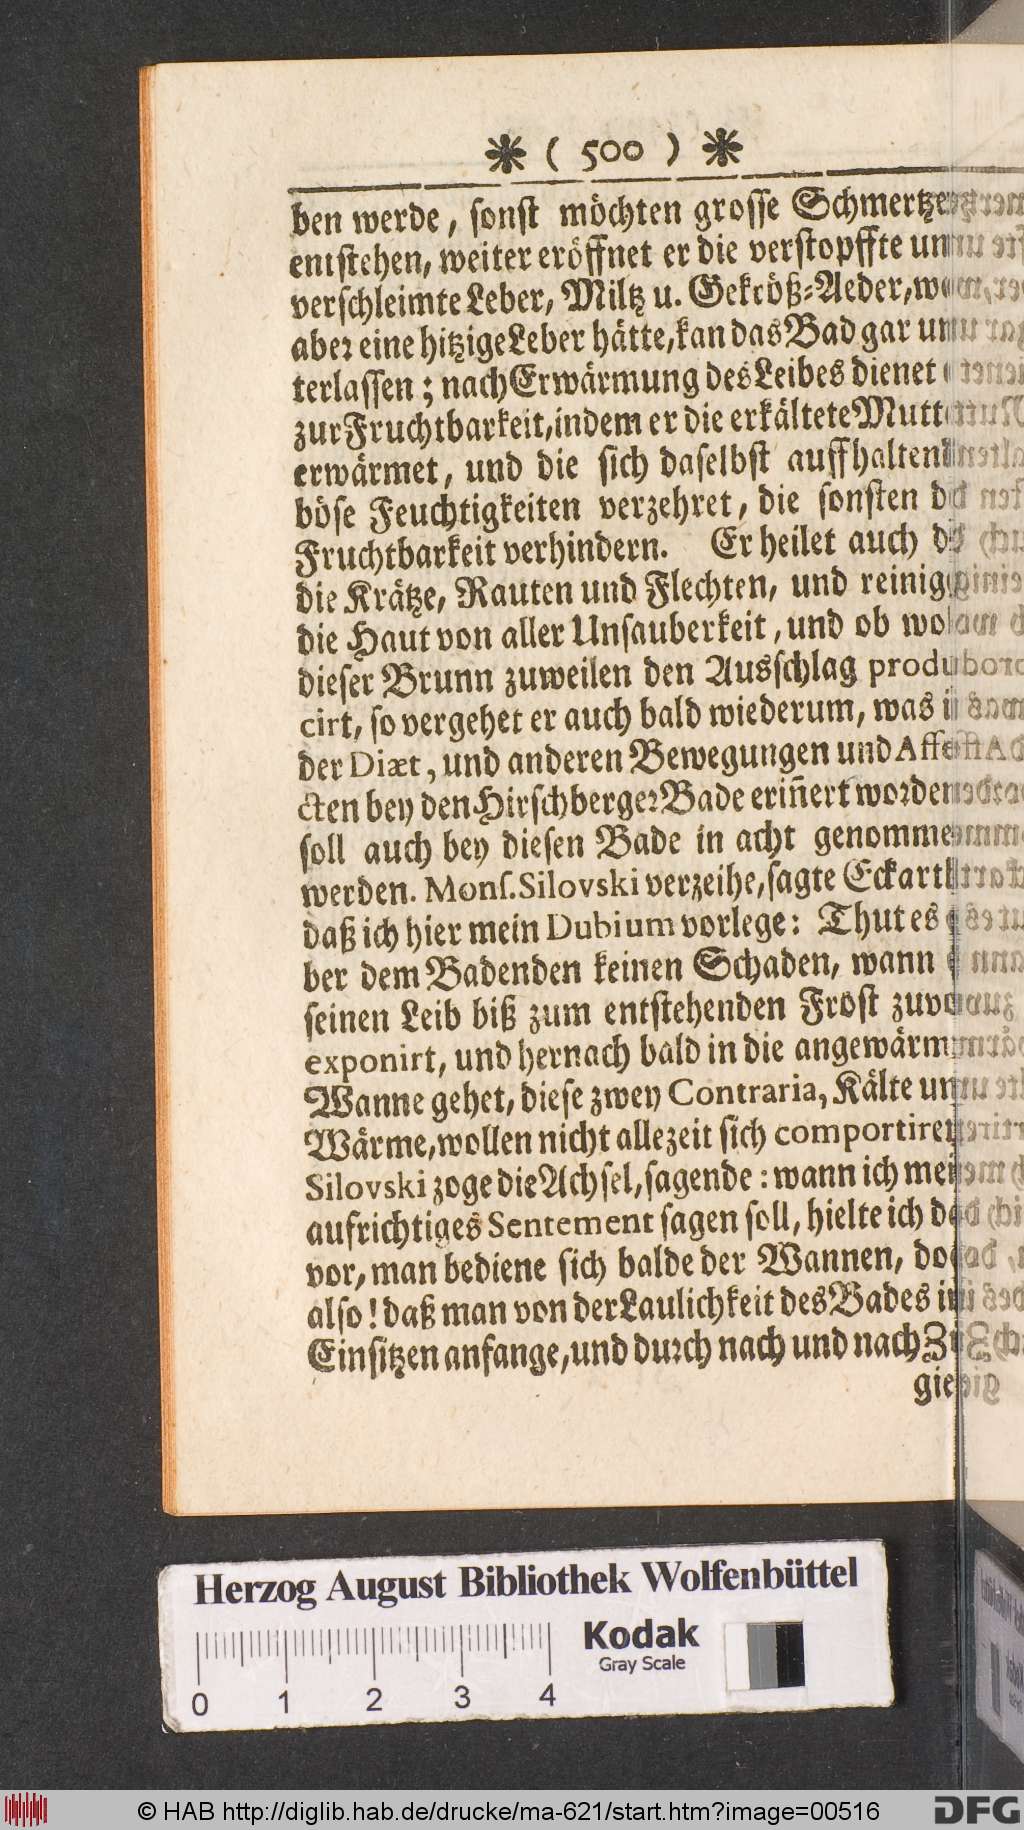 ( 500 )
ben werde, sonst möchten grosse Schmertze
entstehen, weiter eröffnet er die verstopffte un
verschleimte Leber, Miltz u. Gekröß-Aeder, we
aber eine hitzige Leber hätte, kan das Bad gar un
terlassen; nach Erwärmung des Leibes dienet
zur Fruchtbarkeit, indem er die erkältete Mutt
erwärmet, und die sich daselbst auffhaltend
böse Feuchtigkeiten verzehret, die sonsten d
Fruchtbarkeit verhindern. Er heilet auch d
die Krätze, Rauten und Flechten, und reinig
die Haut von aller Unsauberkeit, und ob wol
dieser Brunn zuweilen den Ausschlag produ
cirt, so vergehet er auch bald wiederum, was i
der Diæt, und anderen Bewegungen und Affe
cten bey den Hirschberger Bade erin̄ert worden
soll auch bey diesen Bade in acht genomme
werden. Monſ. Silovski verzeihe, sagte Eckart
daß ich hier mein Dubium vorlege: Thut es
ber dem Badenden keinen Schaden, wann
seinen Leib biß zum entstehenden Frost zuvo
exponirt, und hernach bald in die angewärm
Wanne gehet, diese zwey Contraria, Kälte un
Wärme, wollen nicht allezeit sich comportiren
Silovski zoge die Achsel, sagende: wann ich mei
aufrichtiges Sentement sagen soll, hielte ich da
vor, man bediene sich balde der Wannen, doc
also! daß man von der Laulichkeit des Bades in
Einsitzen anfange, und durch nach und nach Zu
gie
Herzog August Bibliothek Wolfenbüttel
Kodak
Gray Scale
0 1 2 3 4
© HAB http://diglib.hab.de/drucke/ma-621/start.htm?image=00516
DFG